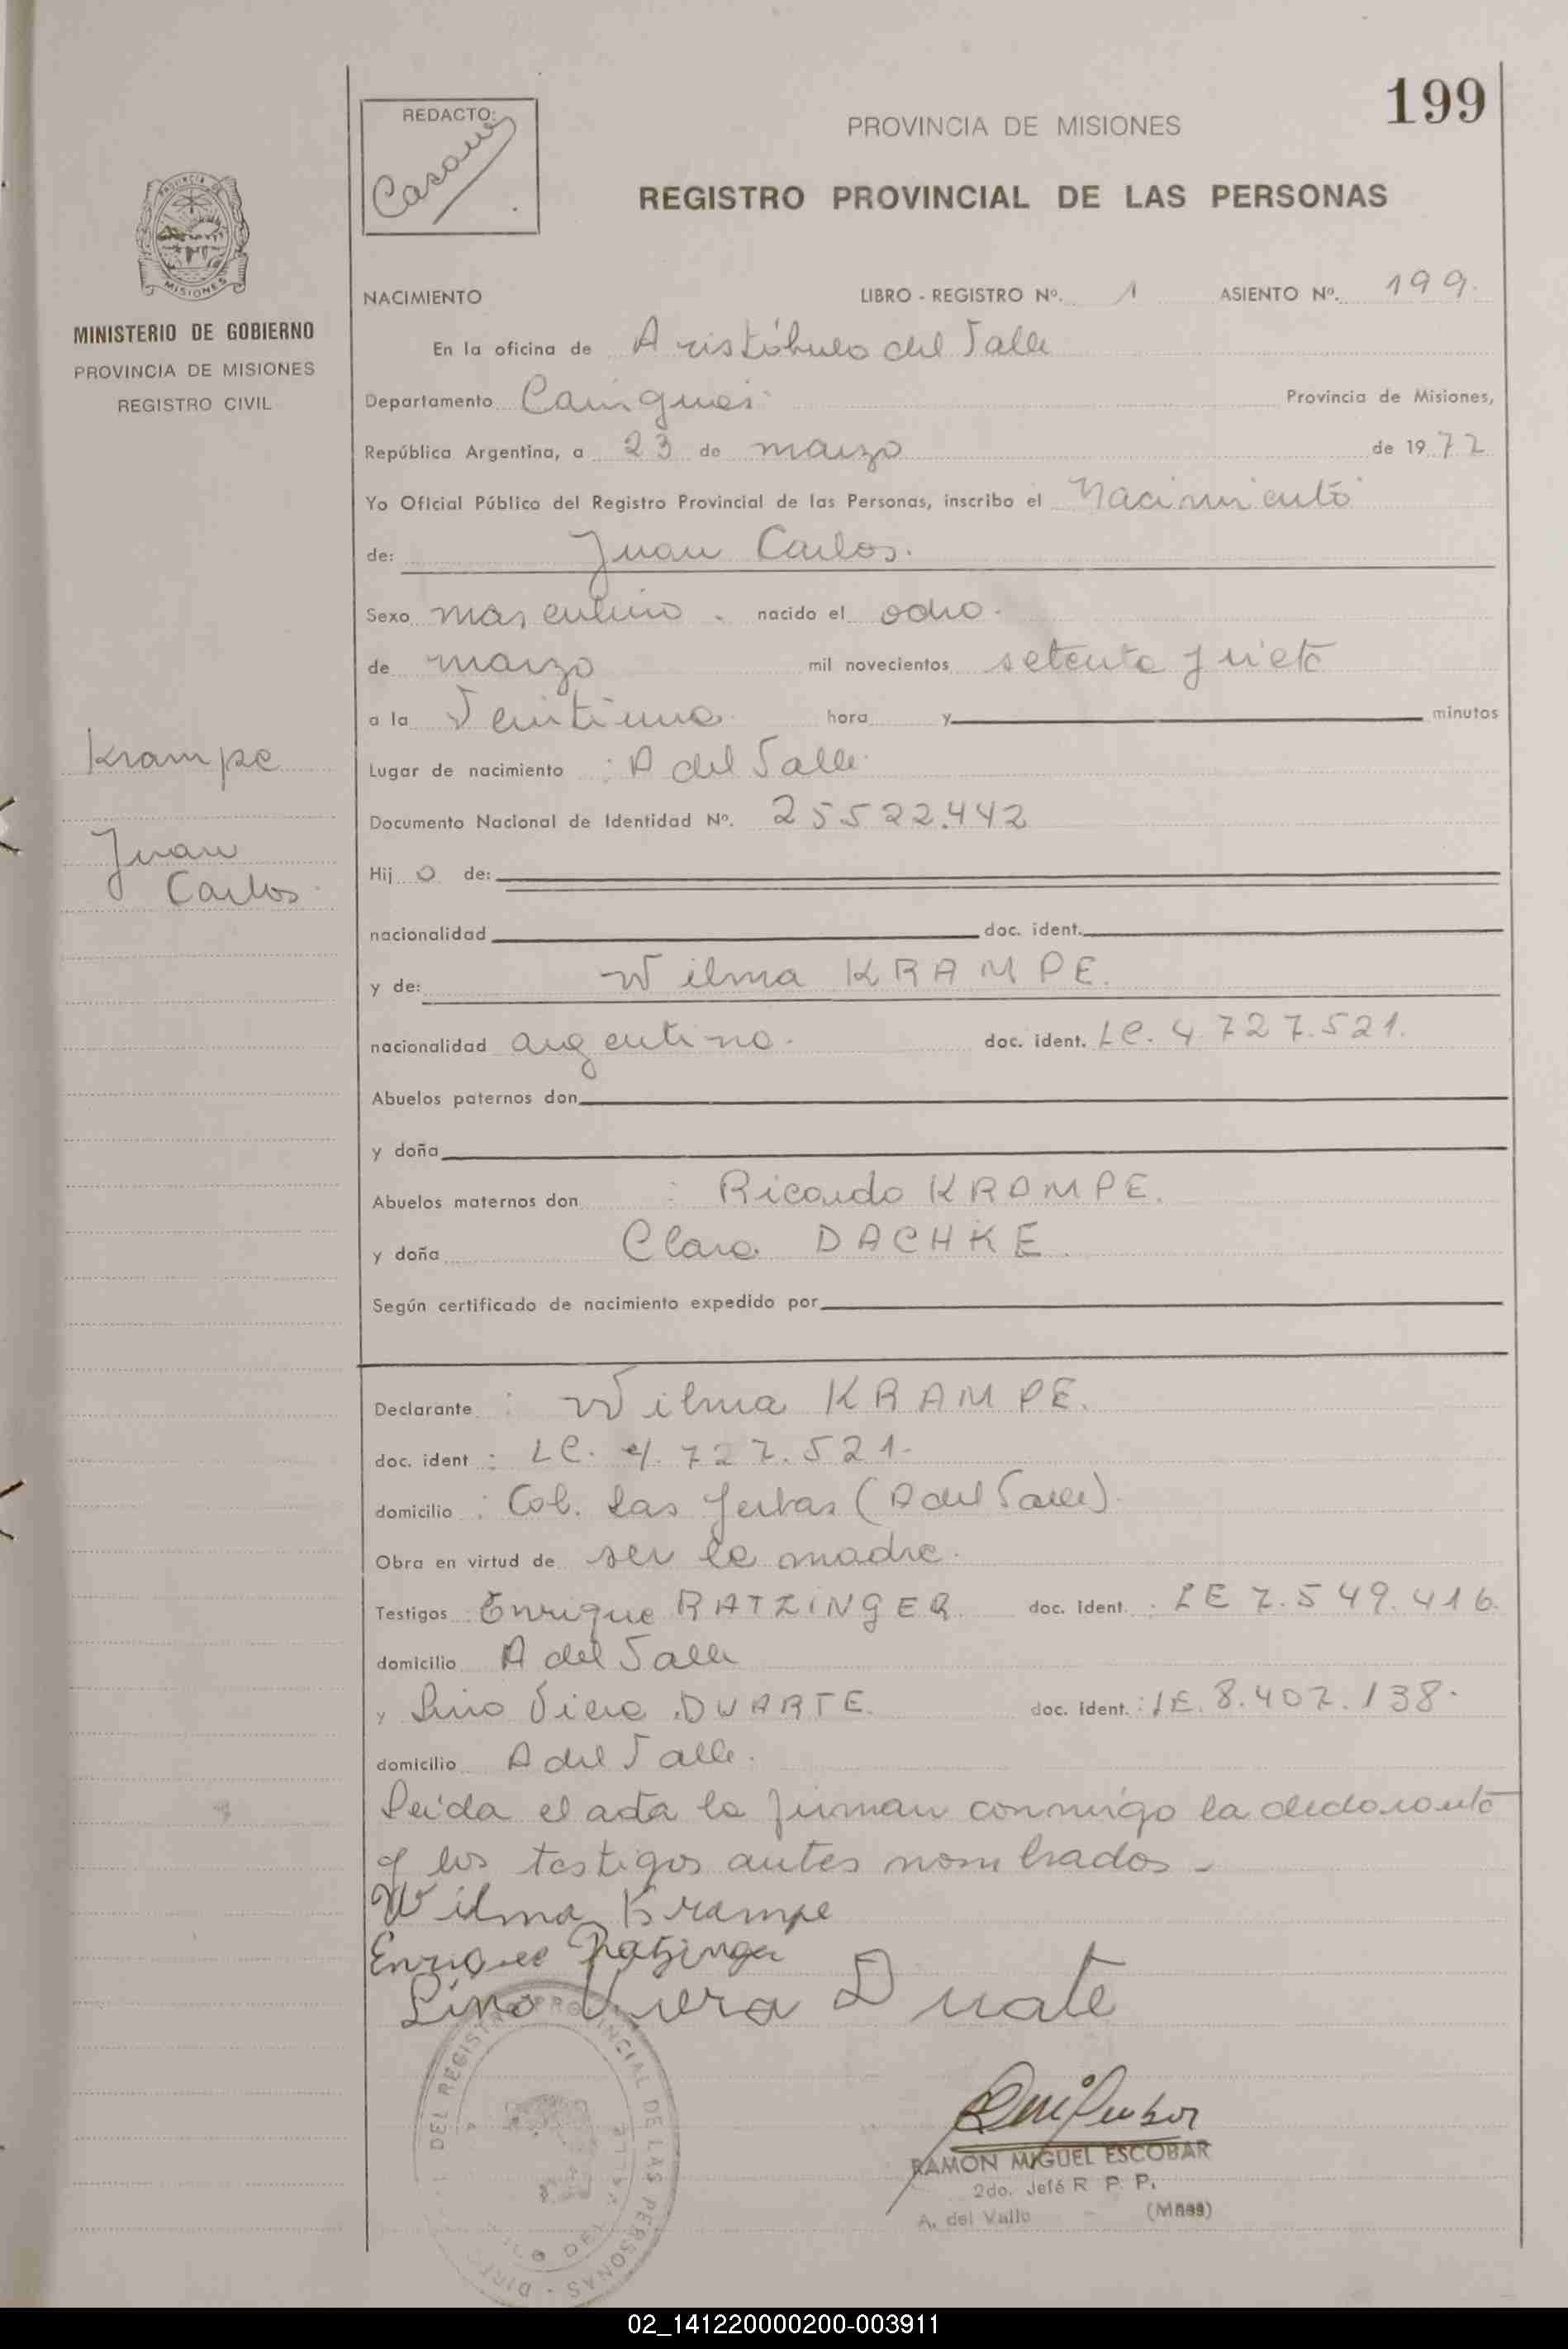 199
REDACTO:
PROVINCIA DE MISIONES
REGISTRO PROVINCIAL DE LAS PERSONAS
MISIONES
MINISTERIO DE GOBIERNO
PROVINCIA DE MISIONES
REGISTRO CIVIL
NACIMIENTO LIBRO - REGISTRO Nº. 1 ASIENTO Nº. 199.
En la oficina de Aristóbulo del Valle
Departamento Cainguas Provincia de Misiones,
República Argentina, a 23 de marzo de 1972
Yo Oficial Público del Registro Provincial de las Personas, inscribo el Nacimiento
de: Juan Carlos.
Sexo masculino. nacido el ocho.
de marzo mil novecientos setenta y siete
a la Veintiuna hora y minutos
Krampe
Lugar de nacimiento : A del Valle.
Documento Nacional de Identidad Nº. 25522.442
Juan
Carlos.
Hij o de:
nacionalidad doc. ident.
y de: Wilma KRAMPE.
nacionalidad argentina. doc. ident. LC. 4.727.521.
Abuelos paternos don
y doña
Abuelos maternos don : Ricardo KRAMPE.
y doña Clara DACHKE.
Según certificado de nacimiento expedido por
Declarante : Wilma KRAMPE.
doc. ident : LC. 4.727.521.
domicilio : Col. Las Yerbas (A del Valle).
Obra en virtud de ser la madre.
Testigos : Enrique RATZINGER. doc. ident. : LE 7.549.416.
domicilio A del Valle
y Lino Viera DUARTE. doc. ident. : LE. 8.407.138.
domicilio A del Valle.
Leida el acta la firman conmigo la declarante
y los testigos antes nombrados -
Wilma Krampe
Enrique Ratzinger
Lino Viera Duate
DEL REGISTRO PROVINCIAL DE LAS PERSONAS
RAMON MIGUEL ESCOBAR
2do. Jefe R. P. P.
A. del Valle - (Mnes)
02_141220000200-003911